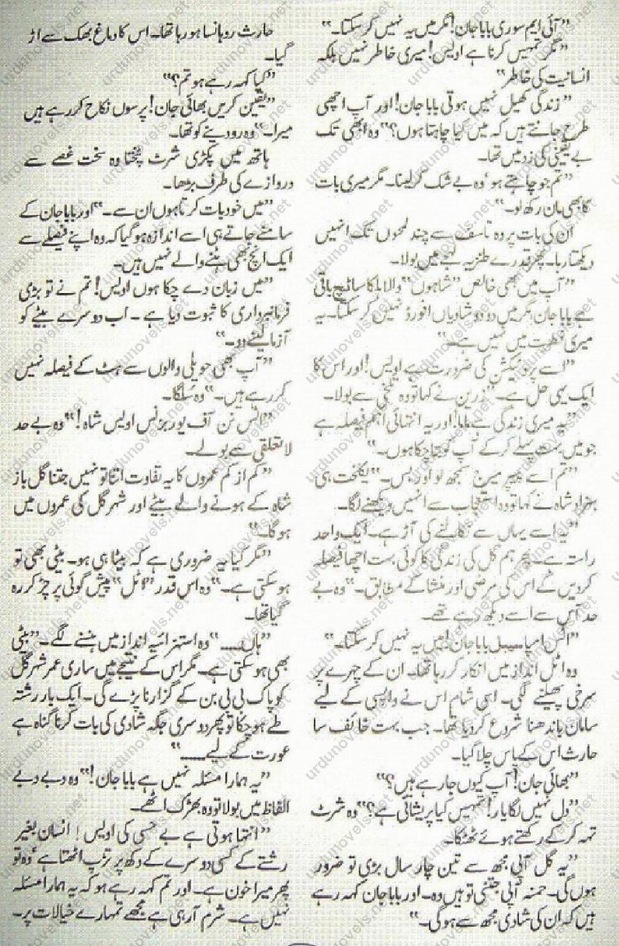 ”آئی ایم سوری بابا جان! مگر میں یہ نہیں کر سکتا۔“
”مگر تمہیں کرنا ہے اویس! میری خاطر نہیں بلکہ
انسانیت کی خاطر“
”زندگی کھیل نہیں ہوتی بابا جان! اور آپ اچھی
طرح جانتے ہیں کہ میں کیا چاہتا ہوں؟“ وہ ابھی تک
بے یقینی کی زد میں تھا۔
”تم جو چاہتے ہو وہ بے شک کر لینا۔ مگر میری بات
کا بھی مان رکھ لو۔“
ان کی بات پر وہ تاسف سے چند لمحوں تک انہیں
دیکھتا رہا۔ پھر قدرے طنزیہ لہجے میں بولا۔
”آپ میں بھی خالص ”شاہوں“ والا ہلکا سا ٹچ باقی
ہے بابا جان، مگر میں دو دو شادیاں افورڈ نہیں کر سکتا۔ یہ
میری فطرت میں نہیں ہے۔“
”اسے پروٹیکشن کی ضرورت ہے اویس! اور اس کا
ایک یہی حل ہے۔“ زرین نے کہا تو وہ تلخی سے بولا۔
”یہ میری زندگی ہے ماما! اور یہ انتہائی اہم فیصلہ ہے
جو میں بہت پہلے کر کے آپ کو بتا چکا ہوں۔“
”تم اسے پیپر میرج سمجھ لو اویس۔“ یکلخت ہی
بہزاد شاہ نے کہا تو وہ استعجاب سے انہیں دیکھنے لگا۔
”یہ اسے یہاں سے نکالنے کی آڑ ہے۔ ایک واحد
راستہ ہے۔ پھر ہم گل کی زندگی کا کوئی بہت اچھا فیصلہ
کر دیں گے اس کی مرضی اور منشا کے مطابق۔“ وہ بے
حد آس سے اسے دیکھ رہے تھے۔
”اٹس امپاسیبل بابا جان! میں یہ نہیں کر سکتا۔“
وہ اٹل انداز میں انکار کر رہا تھا۔ ان کے چہرے پر
سرخی پھیلنے لگی۔ اسی شام اس نے واپسی کے لیے
سامان باندھنا شروع کر دیا تھا۔ جب بہت خائف سا
حارث اس کے پاس چلا آیا۔
”بھائی جان! آپ کیوں جا رہے ہیں؟“
”دل نہیں لگا یار! تمہیں کیا پریشانی ہے؟“ وہ شرٹ
تہہ کر کے رکھتے ہوئے ٹھٹکا۔
”یہ گل آپی مجھ سے تین چار سال بڑی تو ضرور
ہوں گی۔ حمنہ آپی جتنی تو ہیں وہ۔ اور بابا جان کہہ رہے
ہیں کہ ان کی شادی مجھ سے ہو گی۔“
حارث روہانسا ہو رہا تھا۔ اس کا دماغ بھک سے اڑ
گیا۔
”کیا کہہ رہے ہو تم؟“
”یقین کریں بھائی جان! پرسوں نکاح کر رہے ہیں
میرا۔“ وہ رو دینے کو تھا۔
ہاتھ میں پکڑی شرٹ پٹختا وہ سخت غصے سے
دروازے کی طرف بڑھا۔
”میں خود بات کرتا ہوں ان سے۔“ اور بابا جان کے
سامنے جاتے ہی اسے اندازہ ہو گیا کہ وہ اپنے فیصلے سے
ایک انچ بھی ہٹنے والے نہیں ہیں۔
”میں زبان دے چکا ہوں اویس! تم نے تو بڑی
فرمانبرداری کا ثبوت دیا ہے۔ اب دوسرے بیٹے کو
آزما لینے دو۔“
”آپ بھی حویلی والوں سے ہٹ کے فیصلہ نہیں
کر رہے ہیں۔“ وہ سلگا۔
”اٹس نن آف یور بزنس اویس شاہ!“ وہ بے حد
لاتعلقی سے بولے۔
”کم از کم عمروں کا یہ تفاوت اتنا تو نہیں جتنا گل باز
شاہ کے ہونے والے بیٹے اور شہر گل کی عمروں میں
ہو گا۔“
”مگر کیا یہ ضروری ہے کہ بیٹا ہی ہو۔ بیٹی بھی تو
ہو سکتی ہے۔“ وہ اس قدر ”اٹل“ پیش گوئی پر چڑ کر رہ
گیا تھا۔
”ہاں.....“ وہ استہزائیہ انداز میں ہنسنے لگے۔ ”بیٹی
بھی ہو سکتی ہے۔ مگر اس کے نتیجے میں ساری عمر شہر گل
کو پاک بی بی بن کے گزارنا پڑے گی۔ ایک بار رشتہ
طے ہو چکا تو پھر دوسری جگہ شادی کی بات کرنا گناہ ہے
عورت کے لیے.....“
”یہ ہمارا مسئلہ نہیں ہے بابا جان!“ وہ دبے دبے
الفاظ میں بولا تو وہ بھڑک اٹھے۔
”انتہا ہوتی ہے بے حسی کی اویس! انسان بغیر
رشتے کے کسی دوسرے کے دکھ پر تڑپ اٹھتا ہے وہ تو
پھر میرا خون ہے۔ اور تم کہہ رہے ہو کہ یہ ہمارا مسئلہ
نہیں ہے۔ شرم آ رہی ہے مجھے تمہارے خیالات پر۔